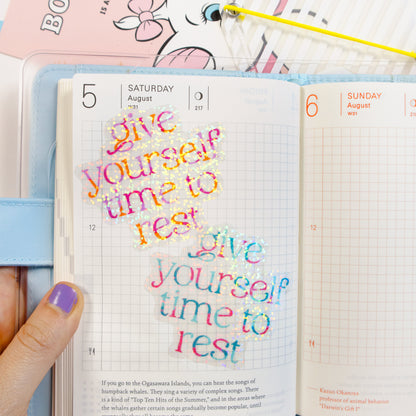 BO
IS A
5
SATURDAY
August
W31
217
give
yourself
time to
rest
give
yourself
time to
rest
12
If you go to the Ogasawara Islands, you can hear the songs of
humpback whales. They sing a variety of complex songs. There
is a kind of "Top Ten Hits of the Summer," and in the areas where
the whales gather certain songs gradually become popular, until
6
SUNDAY
August
W31
12
Kazuo Okanoya
professor of animal behavior
"Darwin's Gift I"